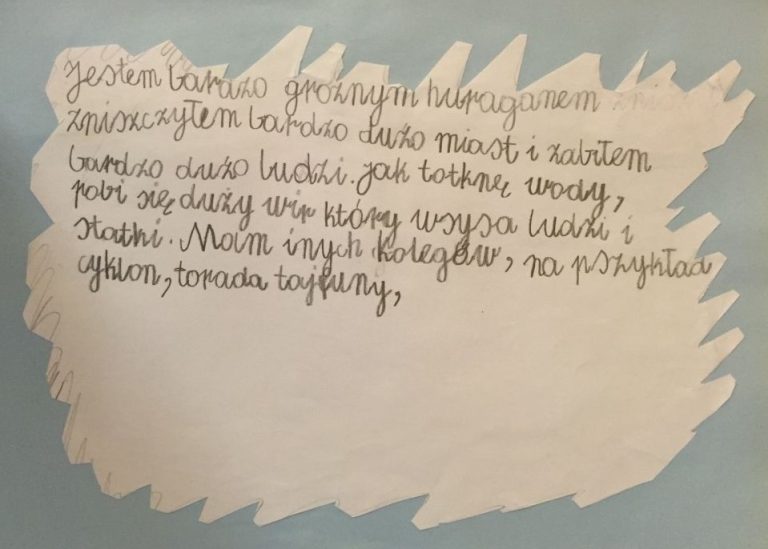 Jestem bardzo groźnym huraganem
zniszczyłem bardzo dużo miast i zabiłem
bardzo dużo ludzi. jak totknę wody,
robi się duży wir który wsysa ludzi i
statki. Mam inych kolegów, na pszykład
cyklon, torada tajfuny,